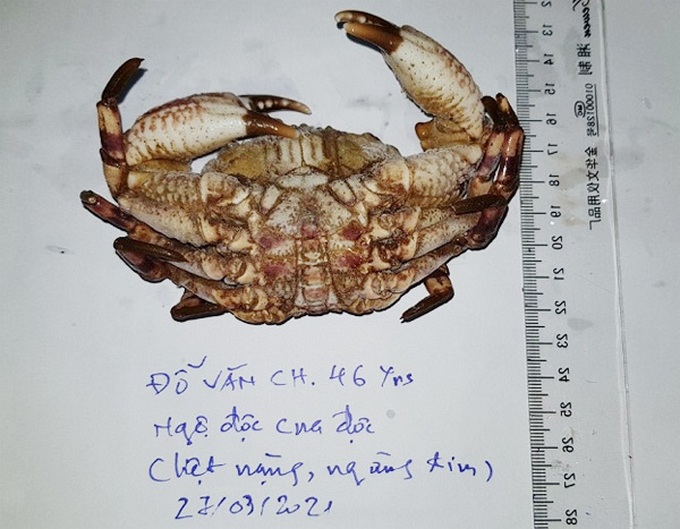 ĐỖ VĂN CH. 46 Yrs
Ngộ độc cua độc
(liệt nặng, ngừng tim)
27/03/2021
12
13
14
15
16
17
18
19
20
21
22
23
24
25
26
27
28